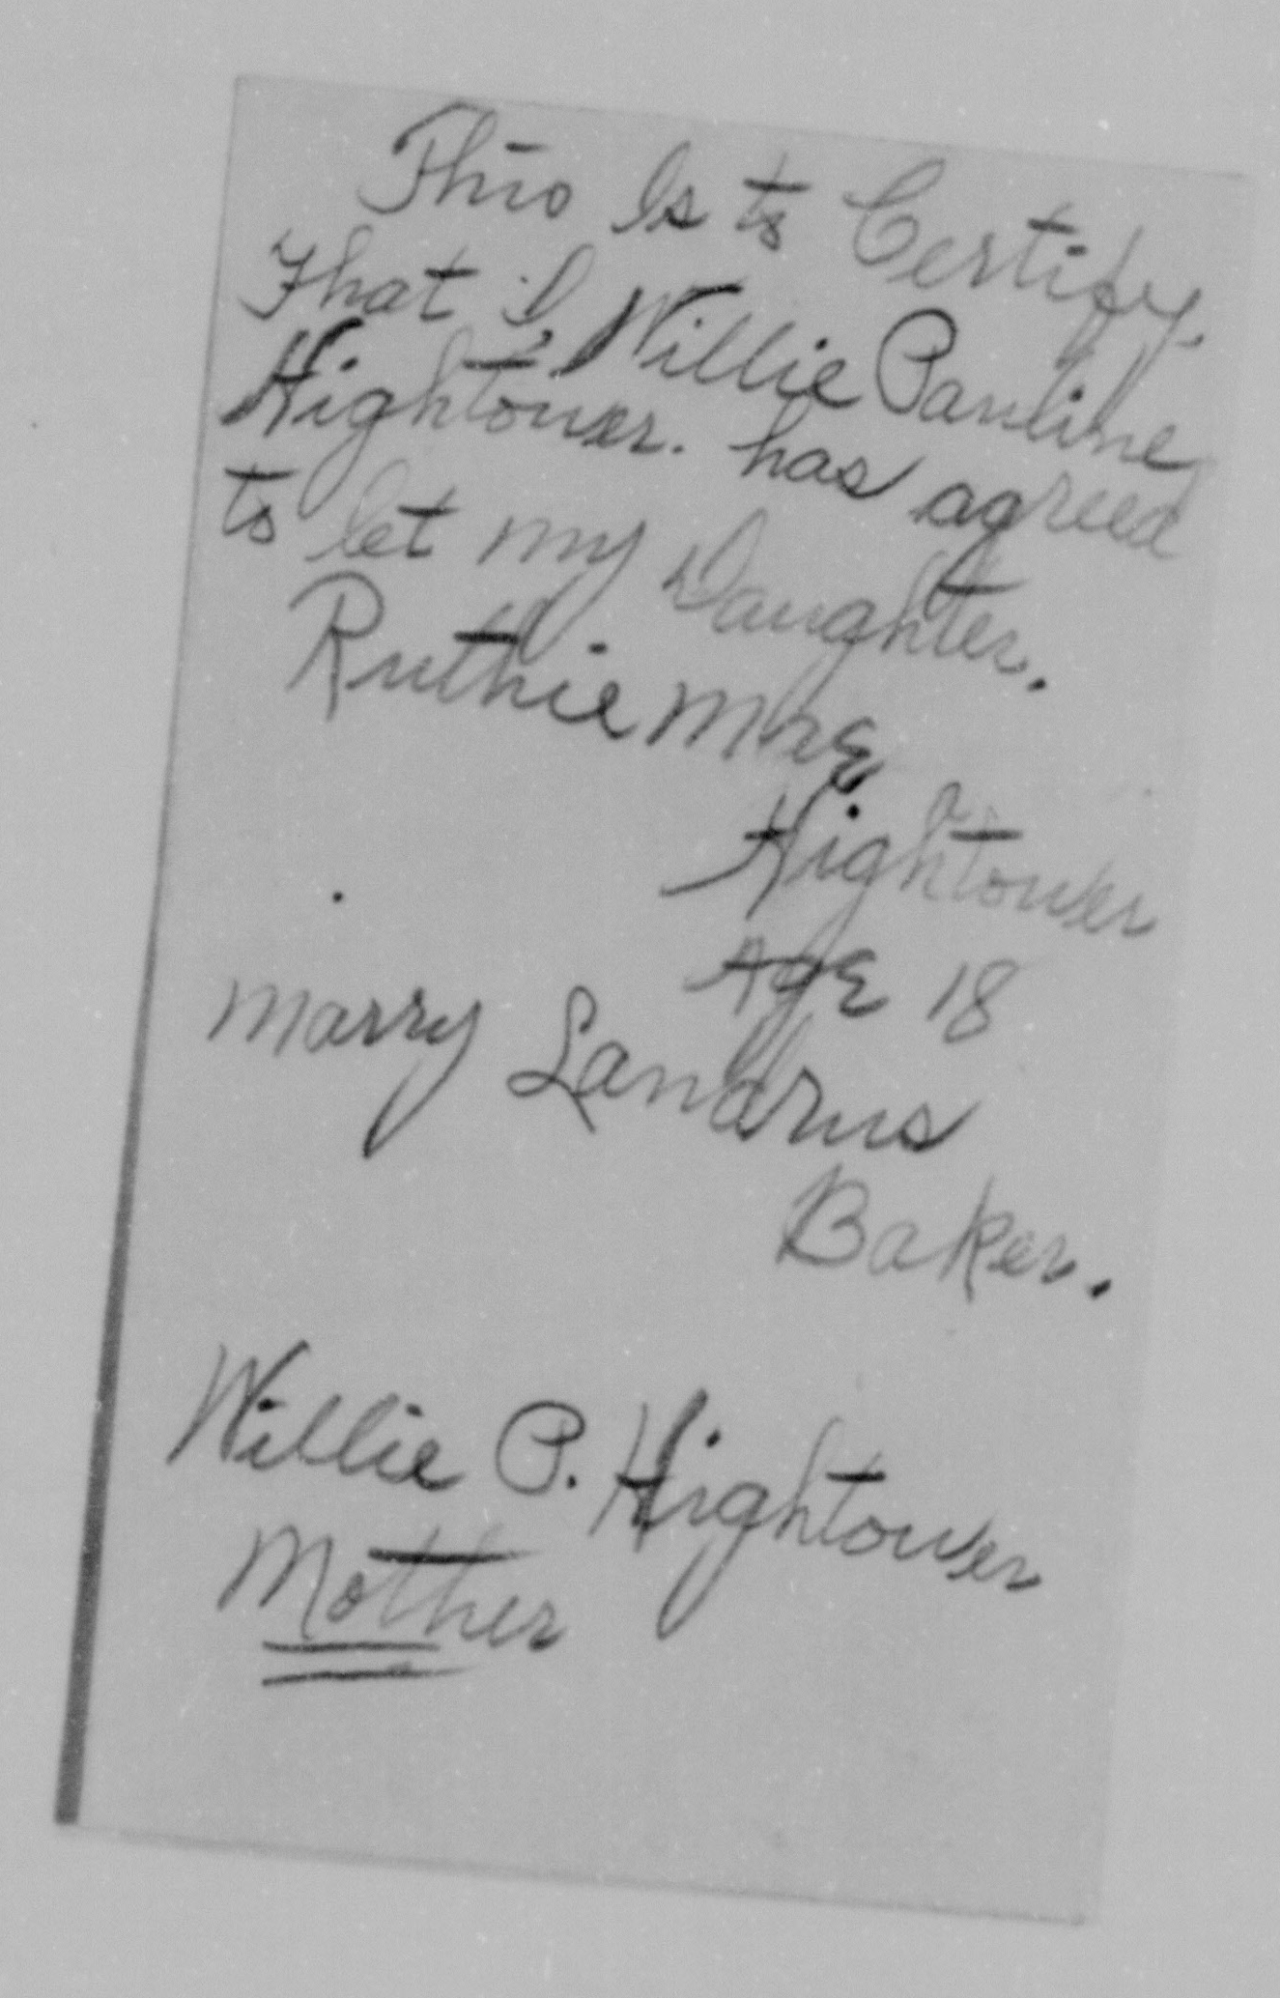 This Is to Certify.
That I, Willie Pauline
Hightower. has agreed
to let my Daughter.
Ruthie Mae
Hightower
AgE 18
marry Landrus
Baker.
Willie P. Hightower
Mother